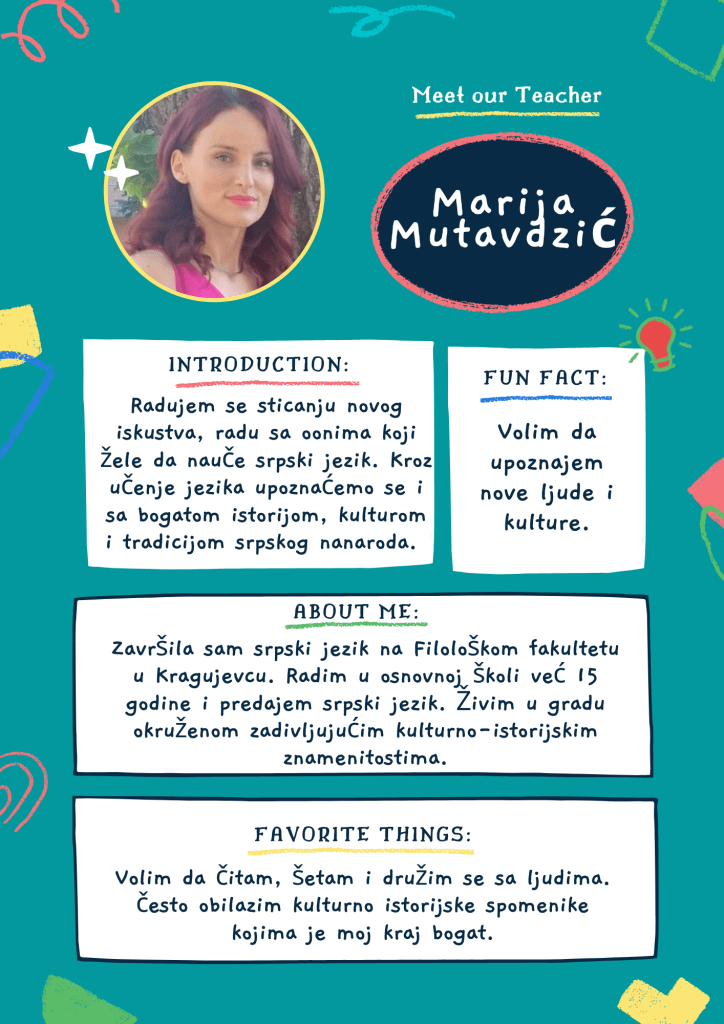 Meet our Teacher
Marija
Mutavdzić
INTRODUCTION:
Radujem se sticanju novog
iskustva, radu sa oonima koji
Žele da nauČe srpski jezik. Kroz
uČenje jezika upoznaĆemo se i
sa bogatom istorijom, kulturom
i tradicijom srpskog nanaroda.
FUN FACT:
Volim da
upoznajem
nove ljude i
kulture.
ABOUT ME:
ZavrŠila sam srpski jezik na FiloloŠkom fakultetu
u Kragujevcu. Radim u osnovnoj Školi veĆ 15
godine i predajem srpski jezik. Živim u gradu
okruŽenom zadivljujuĆim kulturno-istorijskim
znamenitostima.
FAVORITE THINGS:
Volim da Čitam, Šetam i druŽim se sa ljudima.
Često obilazim kulturno istorijske spomenike
kojima je moj kraj bogat.